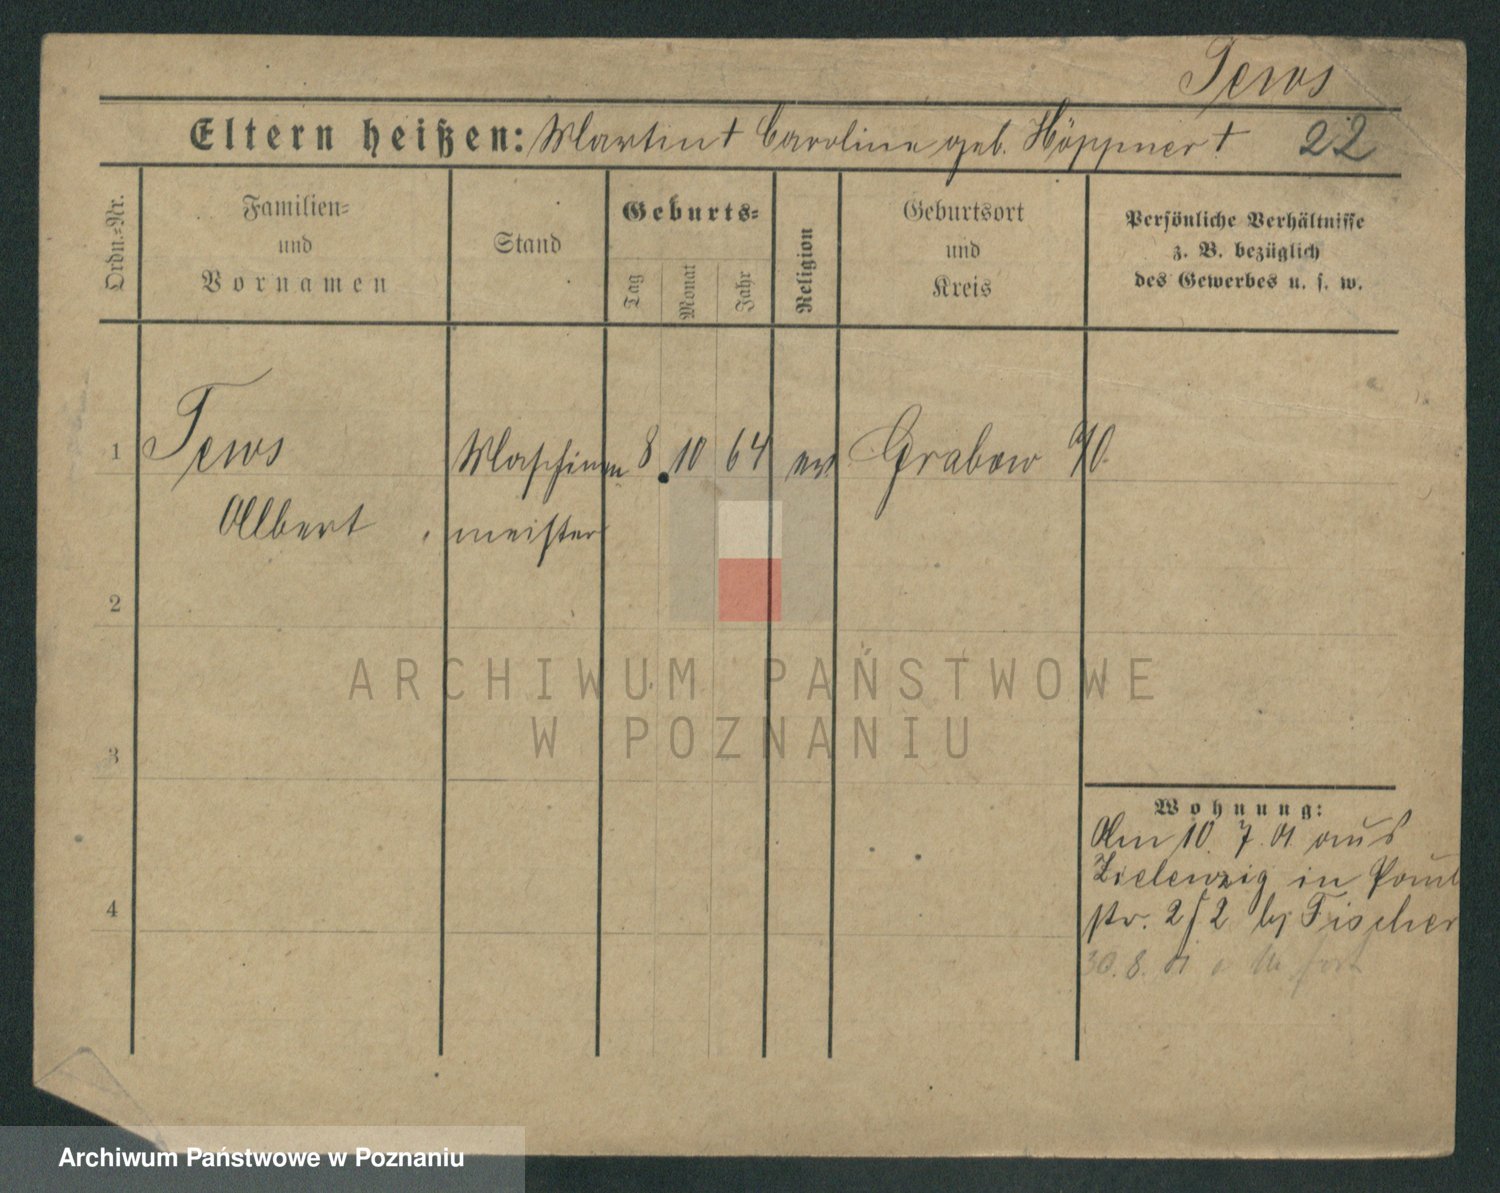 Tews
Eltern heißen: Martin † Caroline geb. Höppner † 22
Ordn.-Nr.
Familien-
und
Vornamen
Stand
Geburts-
Tag
Monat
Jahr
Religion
Geburtsort
und
Kreis
Persönliche Verhältnisse
z. B. bezüglich
des Gewerbes u. s. w.
1 Tews Maschinen 8. 10 64 ev Grabow
Albert meister
2
3
4
Wohnung:
Am 10. 7. 01 aus
Zielenzig in Paul
str. 2 2 bj Fischer
30. 8. 01 fort
ARCHIWUM PAŃSTWOWE
W POZNANIU
Archiwum Państwowe w Poznaniu